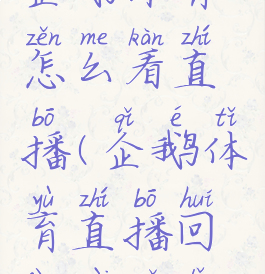 zěn me kàn zhí
怎么看直
bō qǐ é tǐ
播(企鹅体
yù zhí bō huí
育直播回